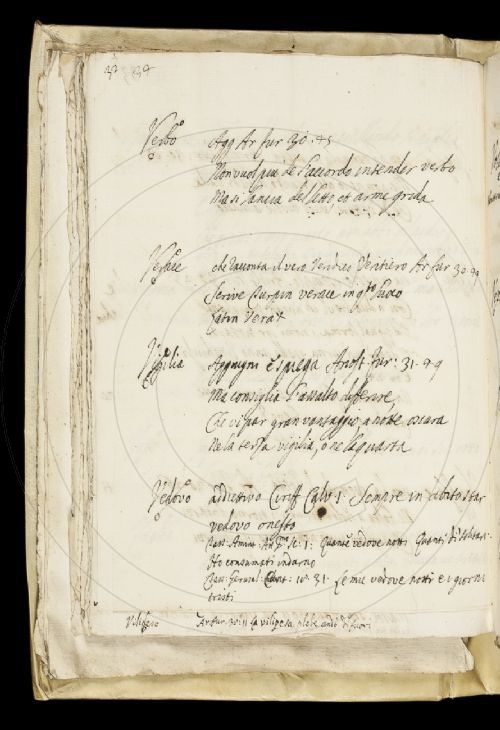 32 34
Verbo Agg Ar fur 30. 45
Non vuol piu de l'accordo intender verbo
Ma si lancia del letto, et arme grida
Verace che racconta il vero Veridico Veritiero Ar fur 30 49
Scrive Turpin verace in q.to luoco
latin Verax
Vigilia Aggiugni e spiega Ariost. fur: 31. 49
Ma consiglia l'assalto differire
Che vi par gran vantaggio, a notte oscura
Ne la terza vigilia, o ne la quarta
Vedovo addiettivo Ciriff Calv. 1 Sempre in abito star
vedovo onesto
sc: 1: Quante vedove notti Quanti dì solitari
Ho consumati indarno
31. Le mie vedove notti e i giorni
tristi
Vilipeso Ar fur. 30. 11 la vilipesa plebe andò di fuori